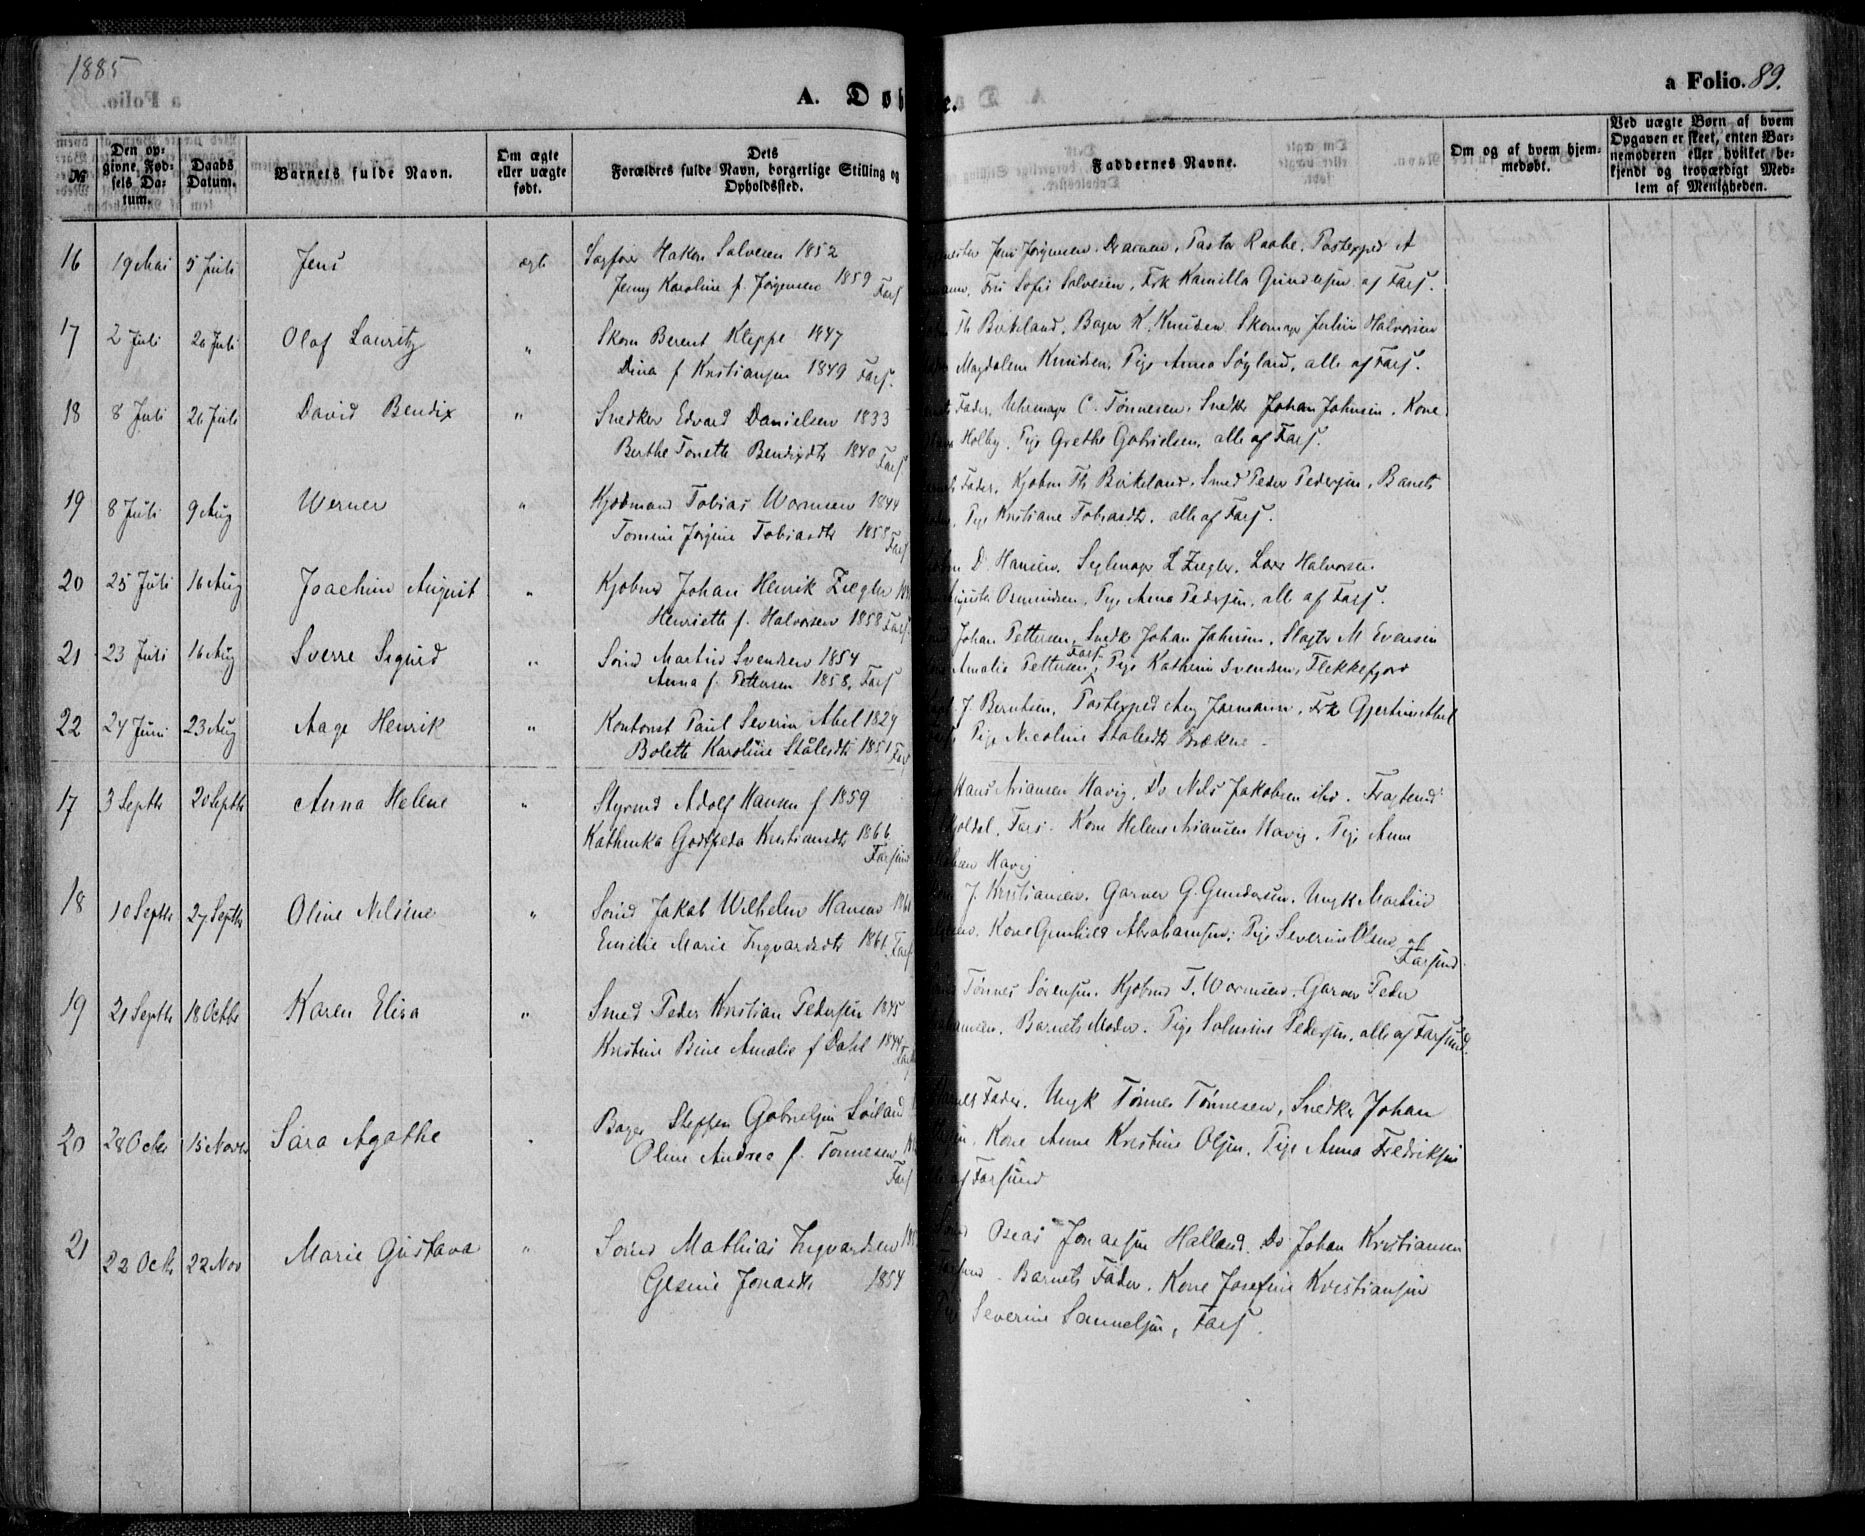 1885
A. Døb
e.
a Folio. 89.
№
Den opgivne Fødsels Datum.
Daabs Datum.
Barnets fulde Navn.
Om ægte eller uægte født.
Dets Forældres fulde Navn, borgerlige Stilling og Opholdssted.
Faddernes Navne.
Om og af hvem hjemmedøbt.
Ved uægte Børn af hvem Opgaven er skeet, enten Barnemoderen eller hvilket bekjendt og troværdigt Medlem af Menigheden.
16 19 Mai 5 Juli Jens ægte Sagfører Haken Salvesen 1852
Jenny Karoline f. Jørgensen 1859 Fars
Jens Jørgensen Drammen, Pastor Raabe, Postexped A
Fru Sofie Salvesen, Frk Kamilla Gundersen af Fars.
17 2 Juli 20 Juli Olaf Lauritz " Skom Berent Kleppe 1847
Dina f Kristiansen 1849 Fars.
Th Birkeland, Bager K. Knudsen Skomager Julius Halvorsen
Magdalene Knudsen, Pige Anna Søyland, alle af Fars.
18 8 Juli 26 Juli David Bendix " Snedker Edvard Danielsen 1833
Berthe Tonette Bendixdtr 1840 Fars
Fader, Uhrmager C. Tønnesen, Snedkr Johan Johnsen, Kone
Holby, Pige Grethe Gabrielsen, alle af Fars.
19 8 Juli 9 Aug Werner " Kjøbmand Tobias Wormsen 1844
Tomine Jørgine Tobiasdtr 1858 Fars
Fader, Kjøbm Th Birkeland, Smed Peder Pedersen, Barnets
Pige Kristiane Tobiasdtr. alle af Fars.
20 25 Juli 16 Aug Joachim August " Kjøbmd Johan Henrik Ziegler
Henriette f. Halvorsen 1858 Fars.
D Hansen, Seglmager L Ziegler, Lars Halvorsen
Osmundsen, Pige Anna Pedersen, alle af Fars.
21 23 Juli 16 Aug Sverre Sigurd " Sømd Martin Svendsen 1854
Anna f. Pettersen 1858, Fars
Johan Pettersen, Snedkr Johan Johnsen, Slagter M Evensen
Amalie Pettersen, Fars. Pige Kathrine Svendsen, Flekkefjord
22 24 Juni 23 Aug Aage Henrik " Kontorist Paul Severin Abel 1829
Bolette Karoline Stålesdtr 1851 Fars
J Berntsen, Postexped Aug Jarmann, Frk Gjertrud Abel
Pige Nicoline Stalesdtr Brækne
17 3 Septbr 20 Septbr Anna Helene " Styrmd Adolf Hansen f 1859
Kathinka Godtfreda Kristiansdtr 1866 Farsund
Hans Ariansen Havig, Do Nels Jakobsen ibd. Fragtemd
Fars. Kone Helene Ariansen Havig, Pige Anne
Havig
18 10 Septbr 27 Septbr Oline Nilsine " Sømd Jakob Wilhelm Hansen
Emilie Marie Ingvardsdtr 1861 Fars
J. Kristiansen, Garver G. Gundersen, Ungk Martin
Kone Gunhild Abrahamsen, Pige Severine Olsen af
Farsund.
19 21 Septbr 18 Octbr Karen Elisa " Smed Peder Kristian Pedersen 1845
Kristine Bine Amalie f Dahl 1844
Tønnes Sørensen, Kjøbmd T. Wormsen, Garver Peder
Barnets Moder, Pige Salmine Pedersen, alle af Farsund.
20 28 Octbr 15 Novbr Sara Agathe Bager Steffen Gabrielsen Søiland
Oline Andrea f. Tønnesen Fars
Fader, Ungk Tønnes Tønnesen, Snedkr Johan
Kone Anne Kristine Olsen, Pige Anna Fredriksen
af Farsund
21 22 Octbr 22 Nov Marie Gustava " Sømd Mathias Ingvardsen
Gesine Jonasdtr 1854
Oseas Jonassen Halland, Do Johan Kristiansen
Barnets Fader, Kone Josefine Kristiansen
Severine Samuelsen, Fars.